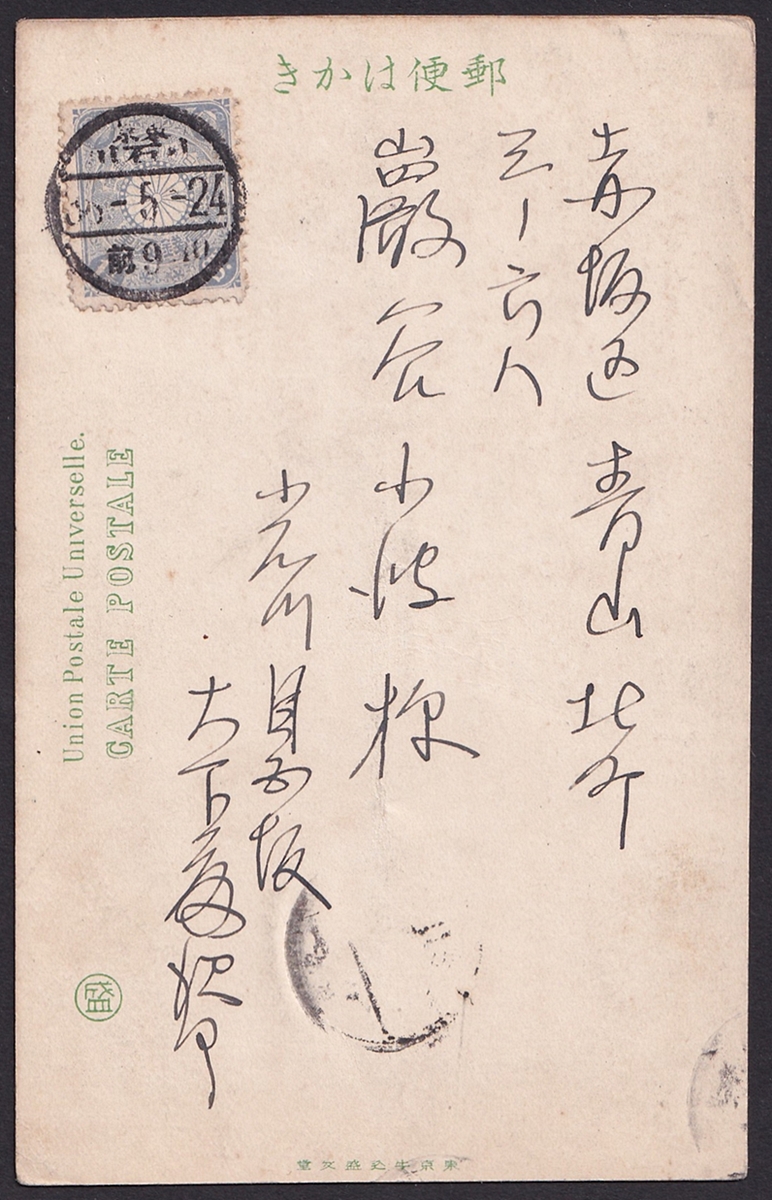 郵便はかき
赤坂区青山北町
三ノ六八
巌谷小波様
小石川 目白坂
大下藤次郎
-5-24
前9-10
Union Postale Universelle.
CARTE POSTALE
盛
東京牛込盛文堂